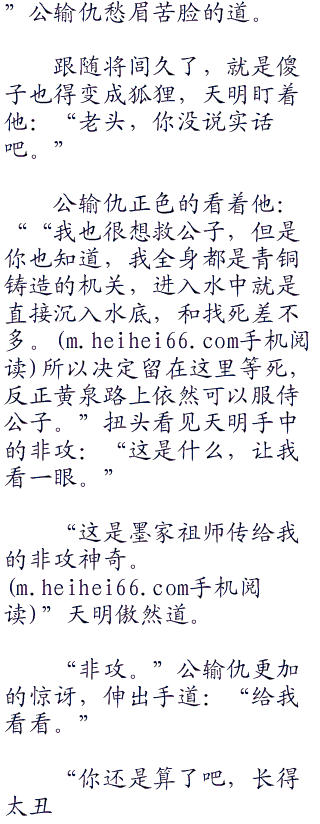 ”公输仇愁眉苦脸的道。
跟随将闾久了，就是傻
子也得变成狐狸，天明盯着
他：“老头，你没说实话
吧。”
公输仇正色的看着他：
““我也很想救公子，但是
你也知道，我全身都是青铜
铸造的机关，进入水中就是
直接沉入水底，和找死差不
多。(m.heihei66.com手机阅
读)所以决定留在这里等死，
反正黄泉路上依然可以服侍
公子。”扭头看见天明手中
的非攻：“这是什么，让我
看一眼。”
“这是墨家祖师传给我
的非攻神奇。
(m.heihei66.com手机阅
读)”天明傲然道。
“非攻。”公输仇更加
的惊讶，伸出手道：“给我
看看。”
“你还是算了吧，长得
太丑